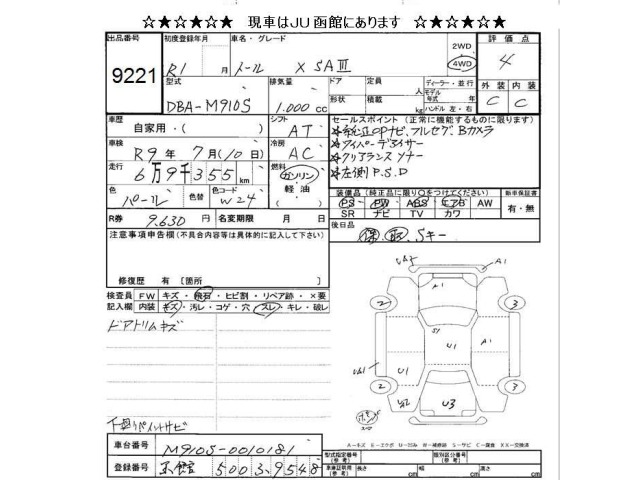 ☆★☆★☆★ 現車はJU函館にあります ☆★☆★☆★
出品番号 9221
初度登録年月 R1 月
車名・グレード トール X SAⅢ
2WD
4WD
評価点 4
外装 内装
C C
型式 DBA-M910S
排気量 1.000 cc
ドア 形状
定員 人
積載 kg
ディーラー・並行
モデル年式 年
ハンドル 左・右
車歴 自家用・( )
シフト AT
車検 R9年7月(10日)
冷房 AC
走行 6万9千355km
燃料 ガソリン 軽油
色 パール
色替
色コード W24
R券 9.630
名変期限 月 日
セールスポイント(正常に機能するものに限ります)
☆純正OPナビ、フルセグ、Bカメラ
☆ワイパーデアイサー
☆クリアランスソナー
☆左側P.S.D
装備品(純正品に限り○をつけてください)
PS PW ABS エアB AW
SR ナビ TV カワ
新車保証書 有・無
後日品 保、取、Sキー
注意事項申告欄(不具合内容等は具体的に記入して下さい)
修復歴 有 [箇所 ]
検査員記入欄
FW キズ・飛石・ヒビ割・リペア跡・×要
内装 キズ・汚レ・コゲ・穴・スレ・キレ・破レ
ドアトリムキズ
下回りペイントサビ
A1
A1
2 3
S1
A1
U1
2 3
U2 U3
A-キズ E-エクボ U-凹み W-補修跡 S-サビ C-腐食 XX-交換済
車台番号 M910S-0010181
登録番号 函館 500 ま 9548
型式指定番号(参考)
類別区分番号(参考)
車庫証明用(参考) 長さ cm 幅 cm 高さ cm